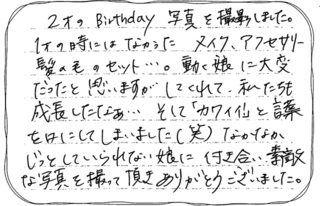 2才の Birthday 写真を撮影しました。
1才の時にはなかった メイク、アクセサリー
髪の毛のセット…。動く娘に大変
だったと思いますが してくれて、私たちも
成長したなぁ… そして「カワイイ」と言葉
を口にしてしまいました(笑) なかなか
じっとしていられない娘に 付き合い 素敵
な写真を撮って頂きありがとうございました。